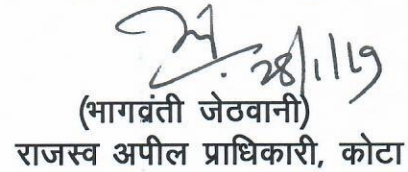 28/1/19
(भागवंती जेठवानी)
राजस्व अपील प्राधिकारी, कोटा